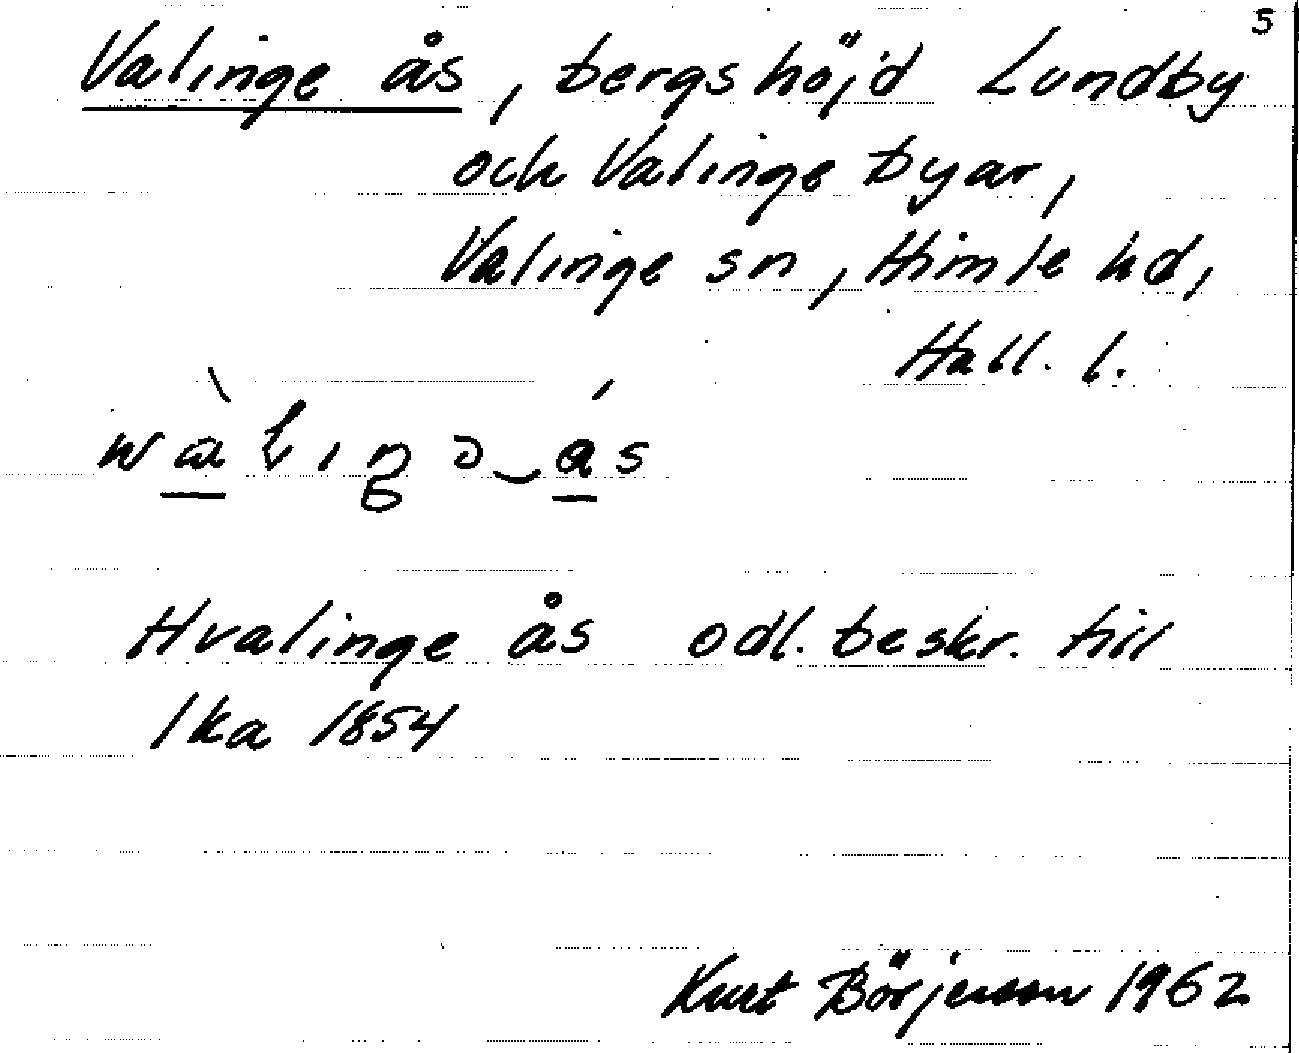 5
Valinge ås, bergshöjd Lundby
och Valinge byar,
Valinge sn, Himle hd,
Hall. l.
Hvalinge ås odl. beskr. till
lka 1854
Kurt Börjesson 1962